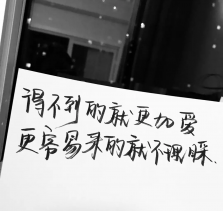 得不到的就更加爱
更容易来的就不理睬.